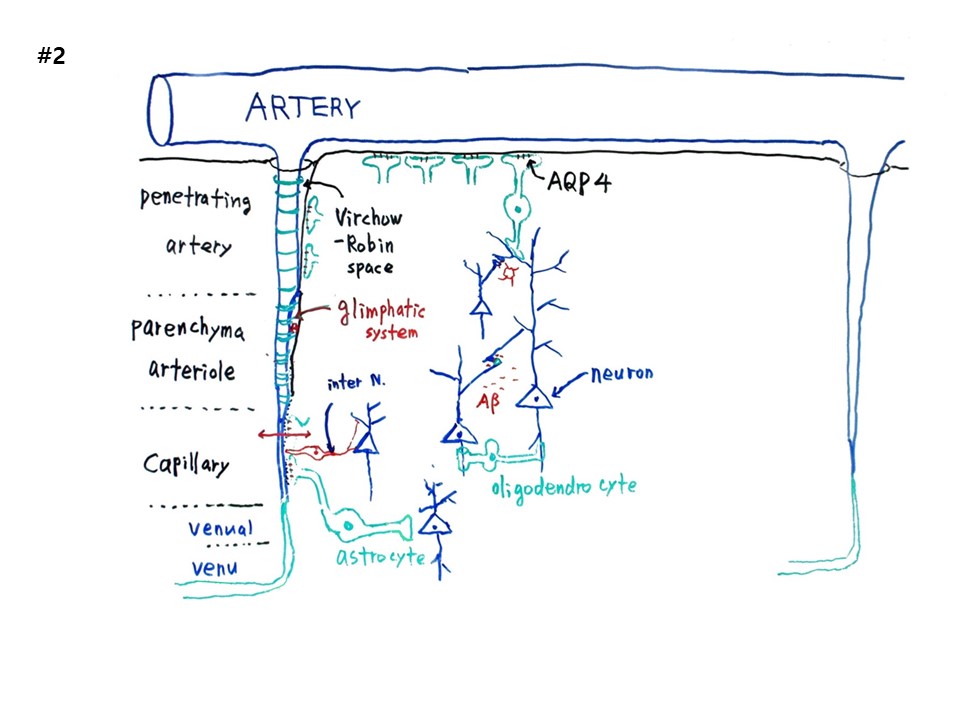 #2
ARTERY
penetrating
artery
AQP4
Virchow
-Robin
space
parenchyma
arteriole
glimphatic
system
inter N.
neuron
Aβ
Capillary
oligodendro cyte
venual
astrocyte
venu